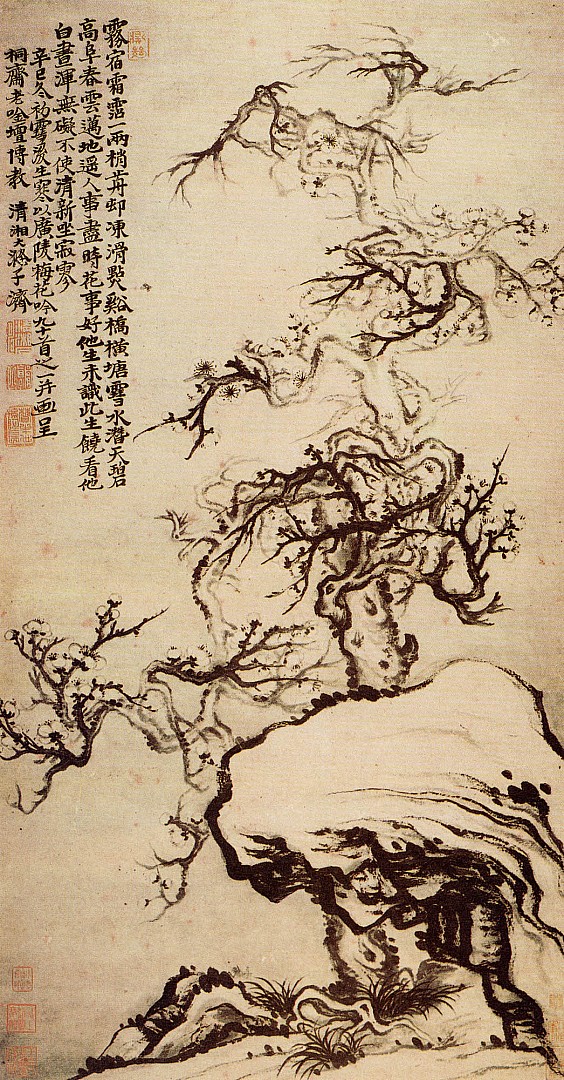 霧宿霜霑一兩梢苒却凍滑谿橋橫塘雪水潛天碧
高阜春雲邁地遥人事盡時花事好他生未識此生饒看他
白晝渾無礙不使清新坐寂寥
辛巳冬初雪後生寒以廣陵梅花吟九首之一并画呈
桐齋老唫壇博教 清湘大滌子濟